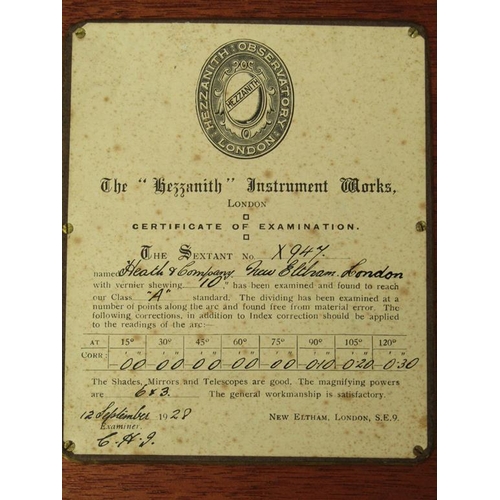 HEZZANITH OBSERVATORY
HEZZANITH
LONDON
The "Hezzanith" Instrument Works,
LONDON
CERTIFICATE OF EXAMINATION.
THE SEXTANT No. X947
named Heath & Company, New Eltham, London
with vernier shewing 10" has been examined and found to reach
our Class "A" standard. The dividing has been examined at a
number of points along the arc and found free from material error. The
following corrections, in addition to Index correction should be applied
to the readings of the arc:—
AT 15° 30° 45° 60° 75° 90° 105° 120°
CORR: ' " ' " ' " ' " ' " ' " ' " ' "
0 0 0 0 0 0 0 0 0 0 0 10 0 20 0 30
The Shades, Mirrors and Telescopes are good. The magnifying powers
are 6 & 3. The general workmanship is satisfactory.
12 September 1928 NEW ELTHAM, LONDON, S.E.9.
Examiner.